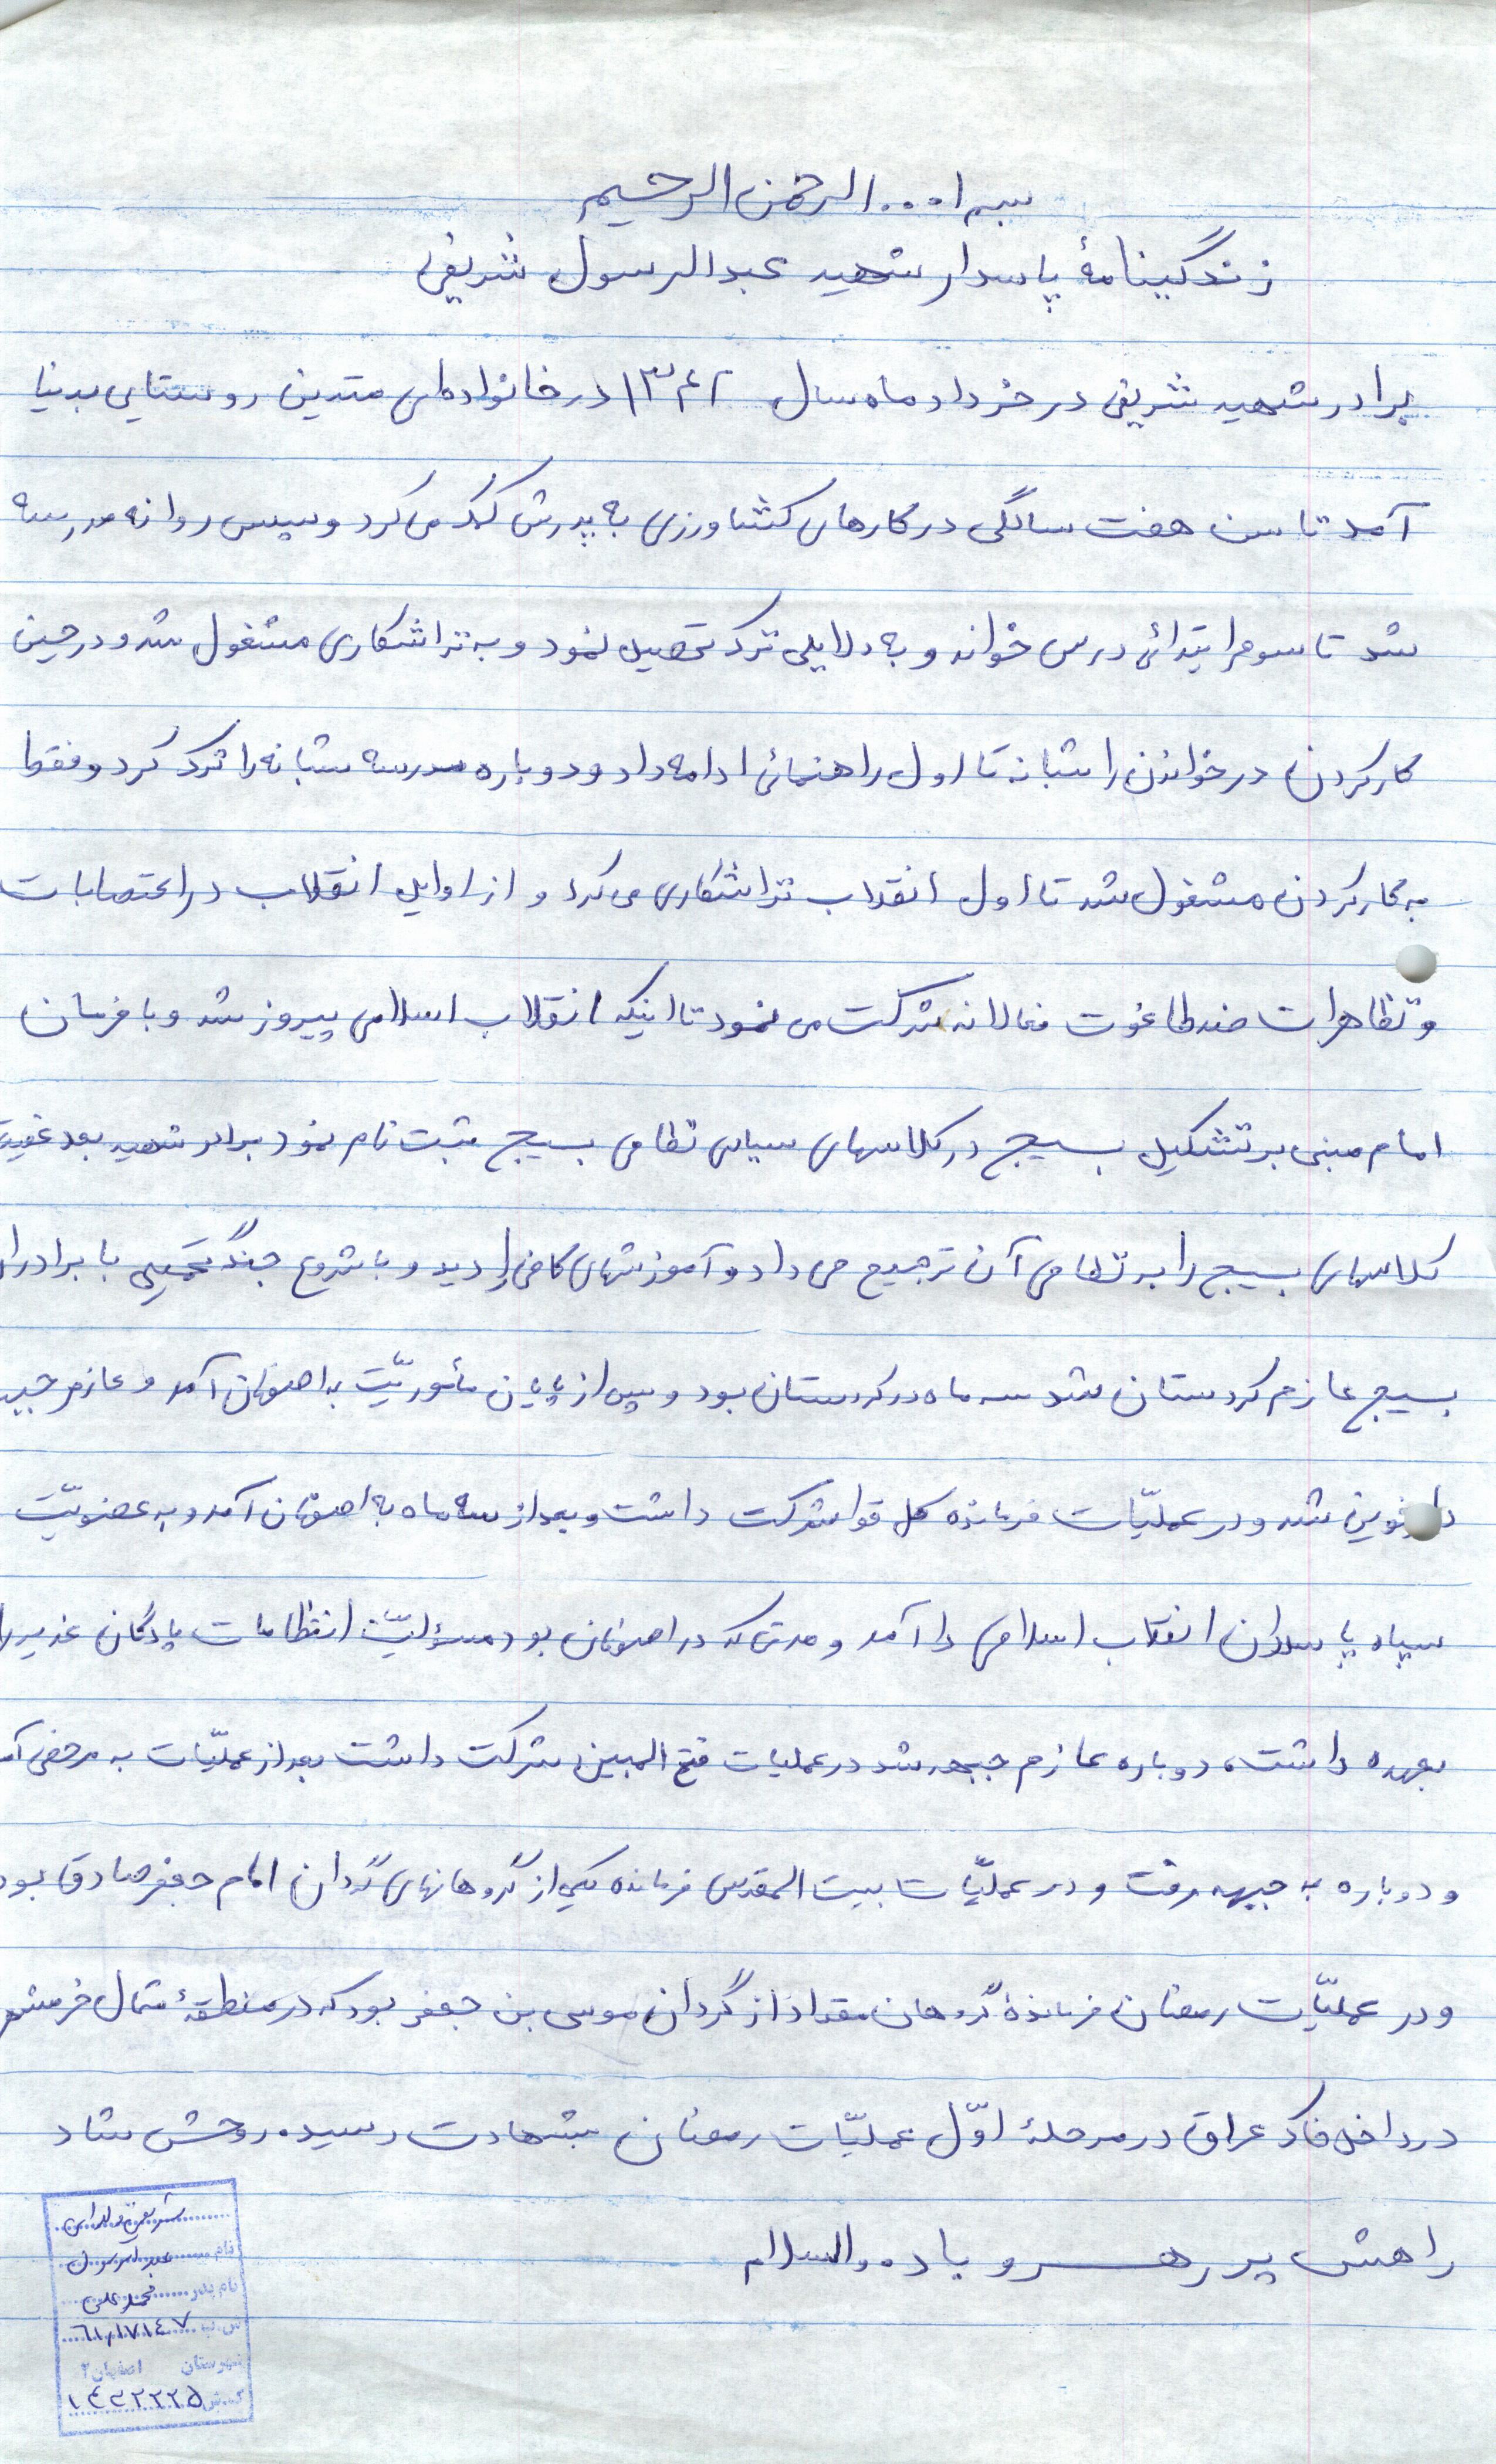 بسم ا... الرحمن الرحیم
زندگینامهٔ پاسدار شهید عبدالرسول شریفی
برادر شهید شریفی در خرداد ماه سال ۱۳۴۲ در خانواده‌ای متدین روستایی بدنیا
آمد تا سن هفت سالگی در کارهای کشاورزی به پدرش کمک می‌کرد و سپس روانه مدرسه
شد تا سوم ابتدائی درس خواند و به دلایلی ترک تحصیل نمود و به تراشکاری مشغول شد و در حین
کار کردن درخواندن را شبانه تا اول راهنمائی ادامه داد و دوباره مدرسه شبانه را ترک کرد و فقط
به کار کردن مشغول شد تا اول انقلاب تراشکاری می‌کرد و از اوایل انقلاب در اعتصابات
و تظاهرات ضد طاغوت فعالانه شرکت می نمود تا اینکه انقلاب اسلامی پیروز شد و با فرمان
امام مبنی بر تشکیل بسیج در کلاسهای سیاسی نظامی بسیج ثبت نام نمود برادر شهید بعد عقیدتی
کلاسهای بسیج را به نظامی آن ترجیح می داد و آموزشهای کافی را دید و با شروع جنگ تحمیلی با برادران
بسیج عازم کردستان شد سه ماه در کردستان بود و پس از پایان مأموریّت به اصفهان آمد و عازم جبهه
دارخوین شد و در عملیّات فرمانده کل قوا شرکت داشت و بعد از سه ماه به اصفهان آمد و به عضویّت
سپاه پاسداران انقلاب اسلامی در آمد و مدتی که در اصفهان بود مسؤلیّت انتظامات پادگان غدیر را
بعهده داشت، دوباره عازم جبهه شد در عملیات فتح المبین شرکت داشت بعد از عملیّات به مرخصی آمد
و دوباره به جبهه رفت و در عملیّات بیت المقدس فرمانده یکی از گروهانهای گردان امام جعفر صادق بود
و در عملیّات رمضان فرماندهٔ گروهان مقداد از گردان موسی بن جعفر بود که در منطقهٔ شمال خرمشهر
در داخل خاک عراق در مرحلهٔ اوّل عملیّات رمضان بشهادت رسید. روحش شاد
راهش پر رهرو باد. والسلام
شریفی
نام عبدالرسول
نام پدر محمدعلی
ش.ب ۶۱/۱۷۱۴۷
شهرستان اصفهان ۲
کد.ش ۱۴۳۲۲۲۵